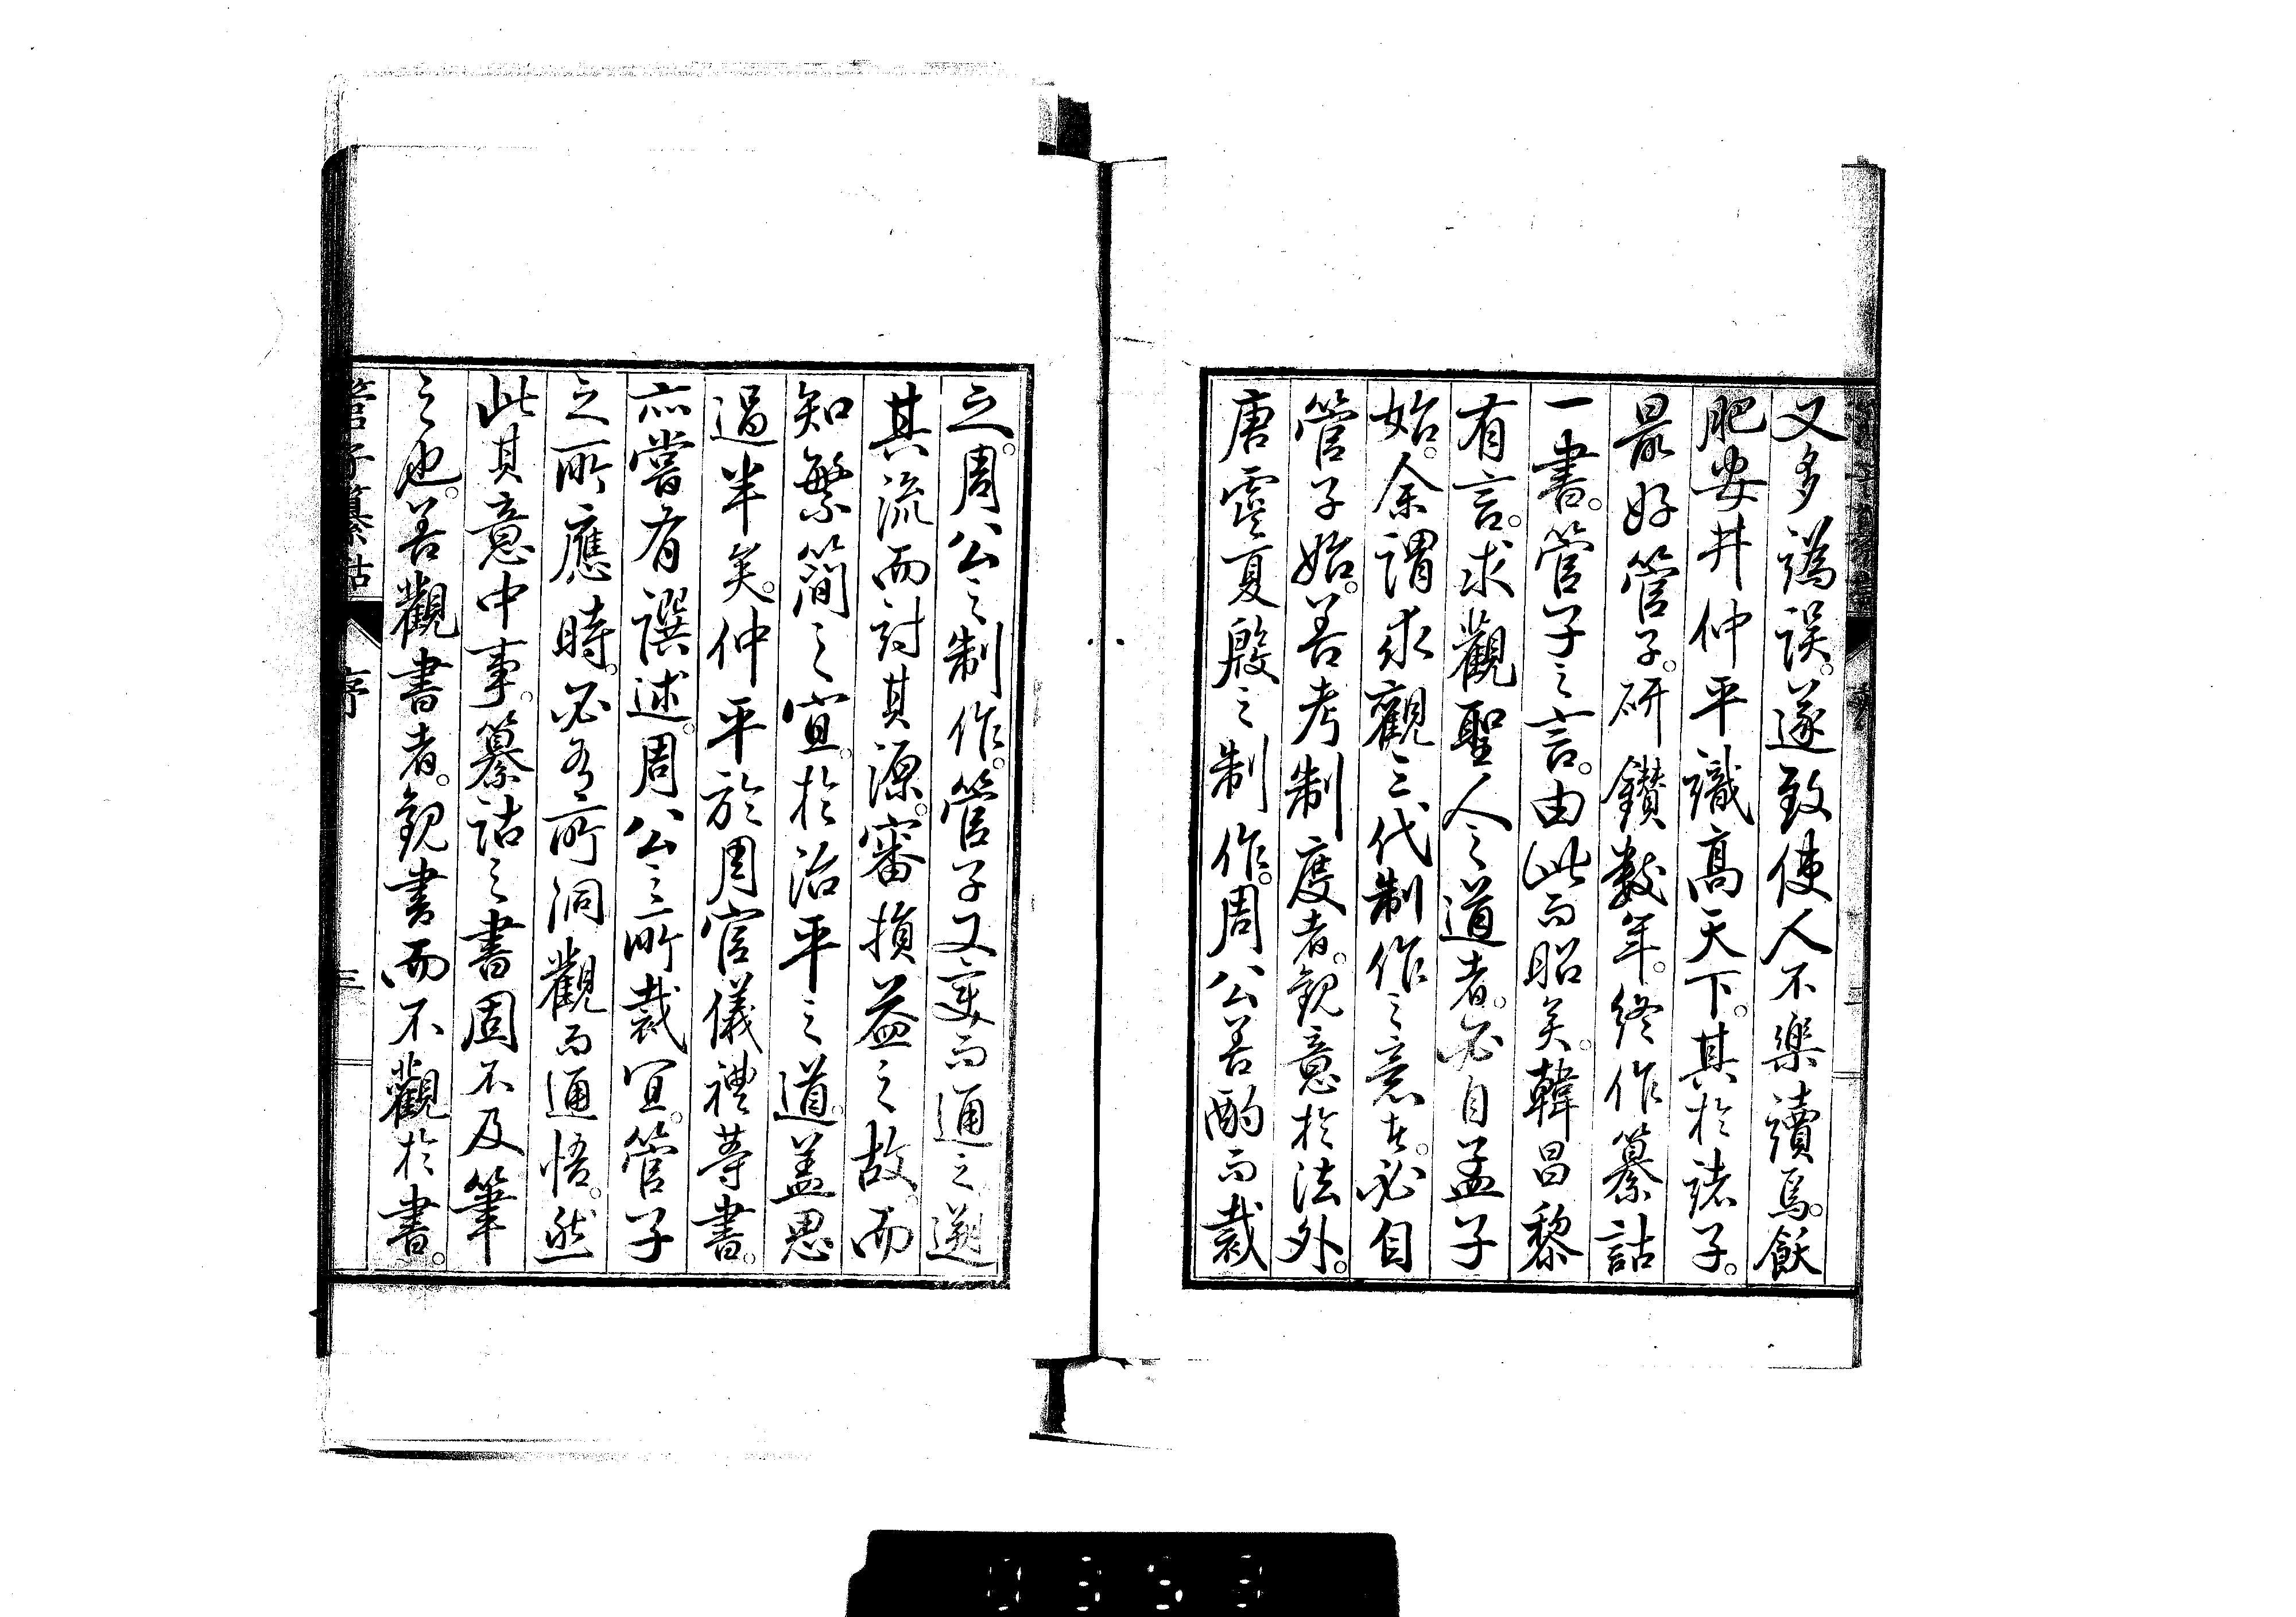 又多譌誤。遂致使人不樂讀焉。飫
肥安井仲平識高天下。其於諸子。
最好管子。研鑽數年。終作纂詁
一書。管子之言。由此而昭矣。韓昌黎
有言。求觀聖人之道者。必自孟子
始。余謂求觀三代制作之意者。必自
管子始。善考制度者。觀意於法外。
唐虞夏殷之制作。周公善酌而裁
之。周公之制作。管子又變而通之。遡
其流而討其源。審損益之故。而
知繁簡之宜。於治平之道。蓋思
過半矣。仲平於周官儀禮等書。
亦嘗有譔述。周公之所裁宜。管子
之所應時。必有所洞觀而通悟。然
此其意中事。纂詁之書固不及筆
之也。善觀書者。觀書而不觀於書。
管子纂詁
序
三